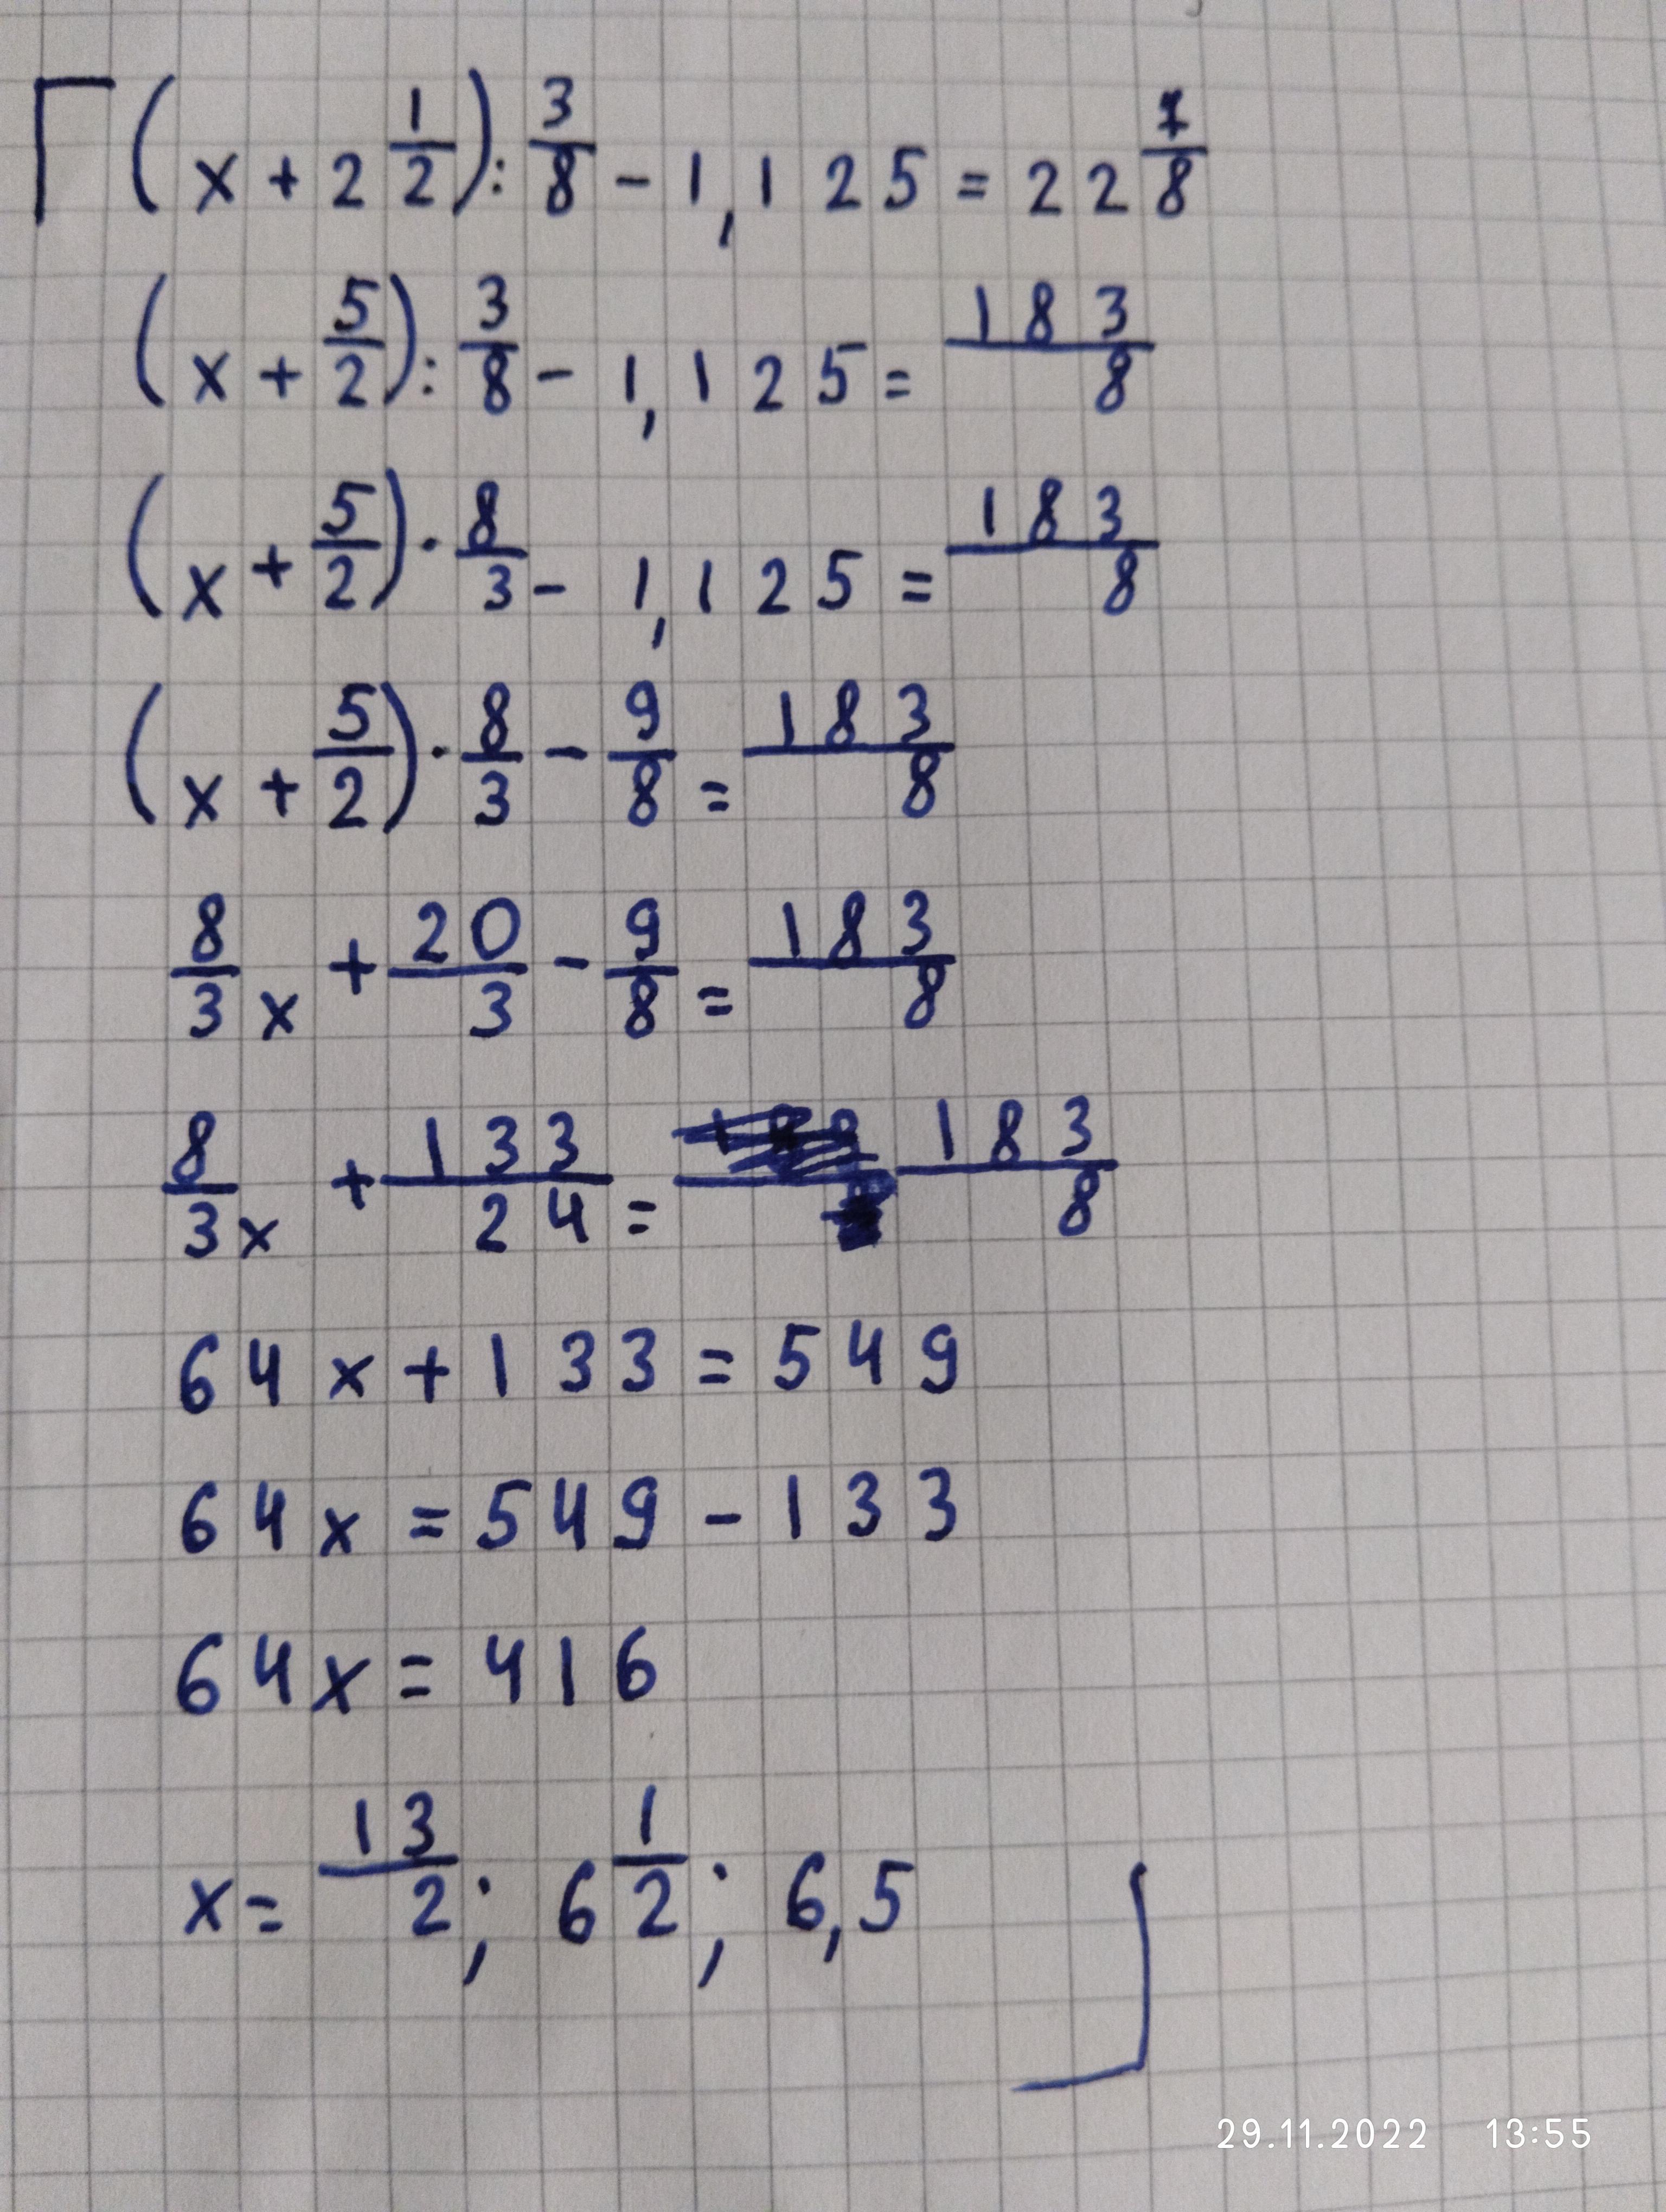 (x + 2 1/2) : 3/8 - 1,125 = 22 7/8
(x + 5/2) : 3/8 - 1,125 = 183/8
(x + 5/2) · 8/3 - 1,125 = 183/8
(x + 5/2) · 8/3 - 9/8 = 183/8
8/3 x + 20/3 - 9/8 = 183/8
8/3 x + 133/24 = 183/8
64x + 133 = 549
64x = 549 - 133
64x = 416
x = 13/2; 6 1/2; 6,5
29.11.2022 13:55